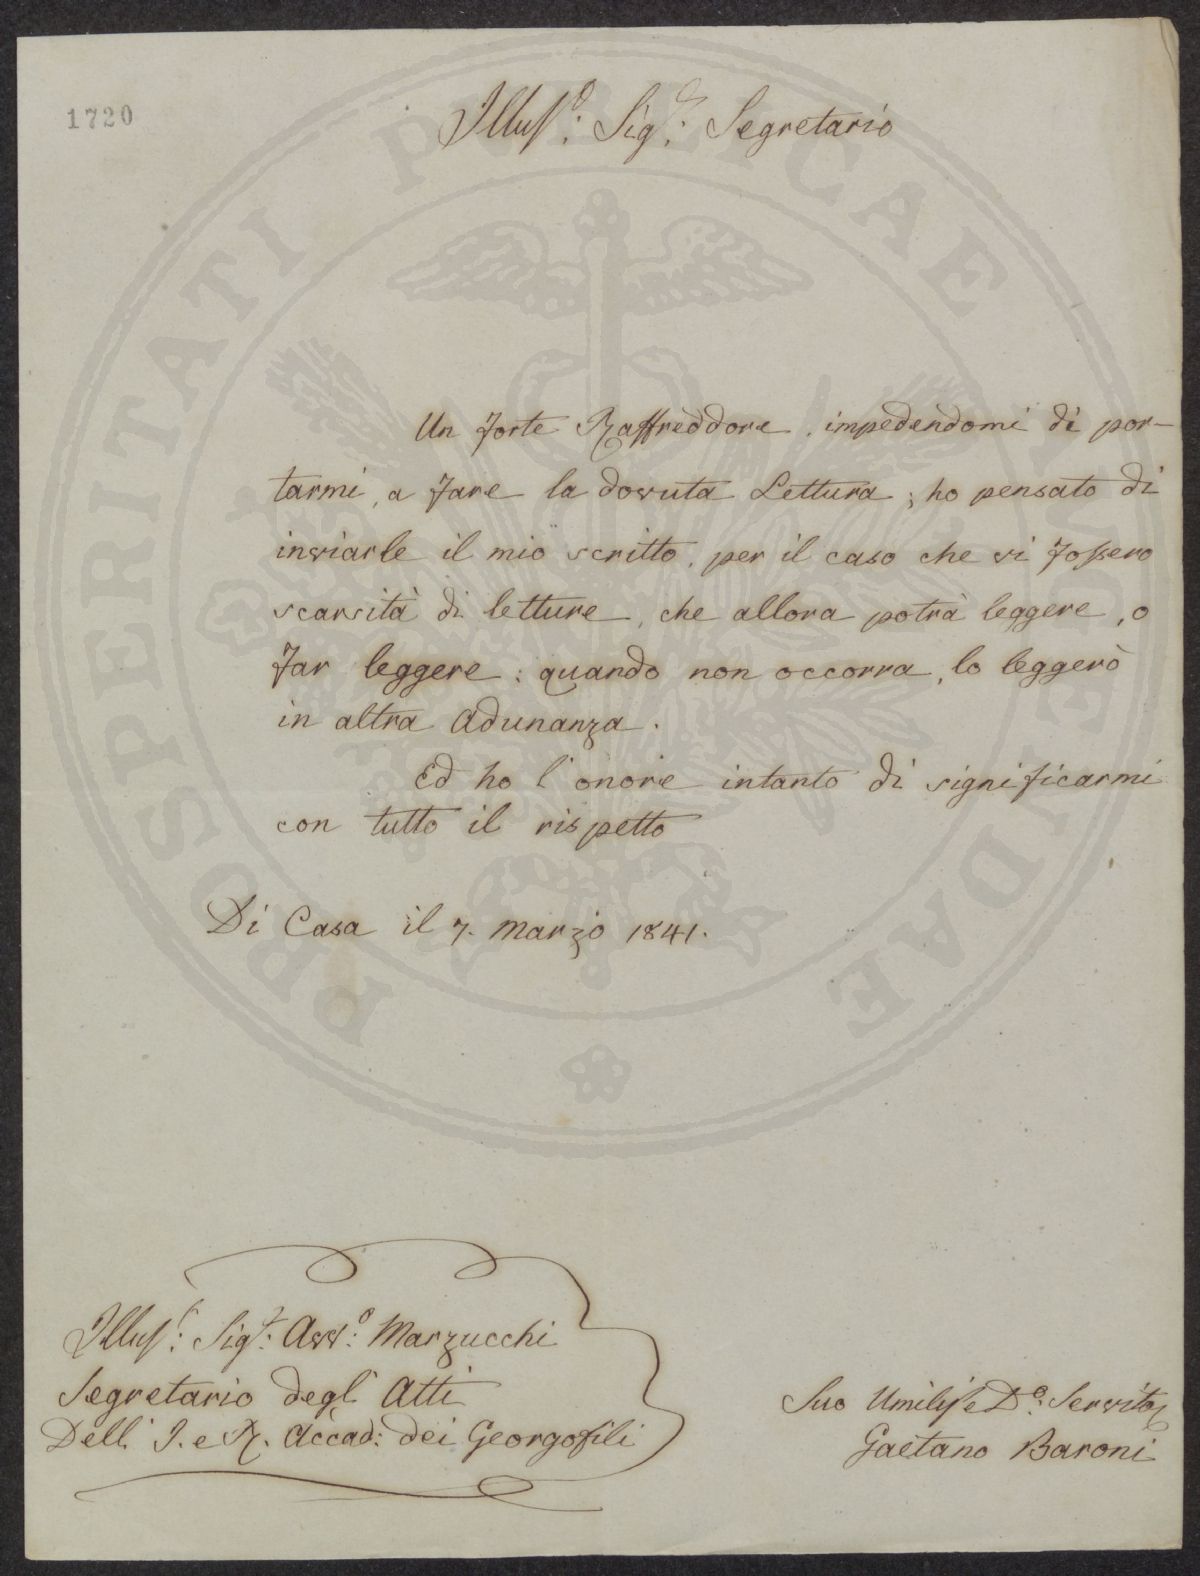 1720
Illus.º: Sig.e: Segretario
Un forte Raffreddore, impedendomi di por-
tarmi, a fare la dovuta Lettura; ho pensato di
inviarle il mio scritto, per il caso che vi fossero
scarsità di letture, che allora potrà leggere, o
far leggere; quando non occorra, lo leggerò
in altra Adunanza.
Ed ho l'onore intanto di significarmi
con tutto il rispetto
Di Casa il 7. Marzo 1841.
Illus.: Sig.r: Avv.o: Marzucchi
Segretario degl'Atti
Dell'I. e R. Accad: dei Georgofili
Suo Umilis. e D.o: Servitor
Gaetano Baroni
PROSPERITATI PUBLICAE AUGENDAE